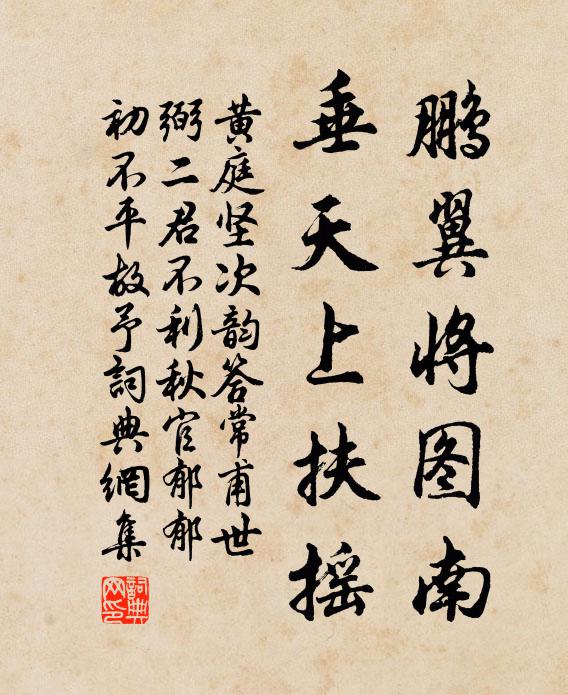 鹏翼将图南
垂天上扶摇
黄庭坚次韵答常甫世
弼二君不利秋官郁郁
初不平故予詞典網集
詞典网印